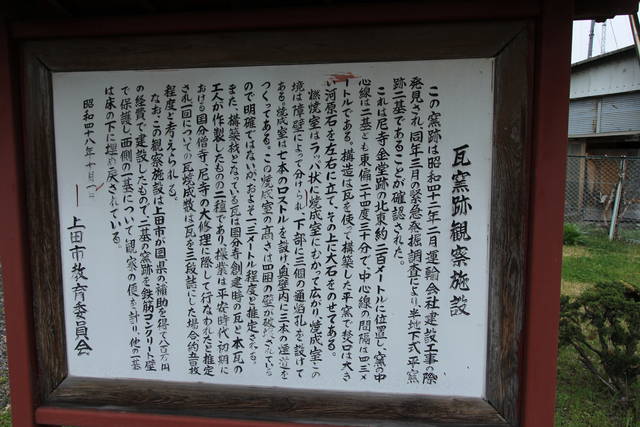 瓦窯跡観察施設
この窯跡は昭和四十三年二月運輸会社建設工事の際
発見され、同年三月の緊急発掘調査により、半地下式平窯
跡二基であることが確認された。
これは尼寺金堂跡の北東約二百メートルに位置し、窯の中
心線は二基とも東偏二十四度三十分で、中心線の間隔は四・三メ
ートルである。構造は瓦を使って構築した平窯で焚口は大き
い河原石を左右に立て、その上に大石をのせてある。
燃焼室はラッパ状に焼成室にむかって広がり、焼成室との
境は障壁によって分けられ、下部に三個の通焔孔を設けて
ある。焼成室は七本のロストルを設け、奥壁内に三本の煙道を
つくってある。この焼成室の高さは四囲の壁が破壊されている
ので明確ではないが、およそ一・三メートル程度と推定される。
また、構築材となっている瓦は国分寺創建時の瓦と本瓦の
工人が作製したものの二種であり、操業は平安時代の初期に
おける国分僧寺、尼寺の大修理に際して行なわれたと推定
され一回についての瓦焼成数は瓦を三段詰にした場合約五百枚
程度と考えられる。
なお、この観察施設は上田市が国県の補助を得て八百万円
の経費で建設したもので、二基の窯跡を鉄筋コンクリート壁
で保護し、西側の一基について観察の便を計り、他の一基
は床の下に埋め戻されている。
昭和四十八年十月一日
上田市教育委員会